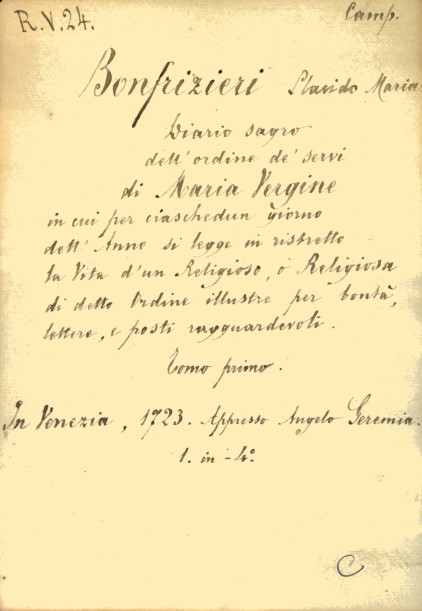 R.V.24.
Camp.
Bonfrizieri Placido Maria
Diario sagro
dell' ordine de' servi
di Maria Vergine
in cui per ciaschedun giorno
dell' Anno si legge in ristretto
la Vita d'un Religioso, o Religiosa
di detto Ordine illustre per bontà,
lettere, e posti ragguardevoli.
Tomo primo.
In Venezia, 1723. Appresso Angelo Geremia.
1. in-4º
C